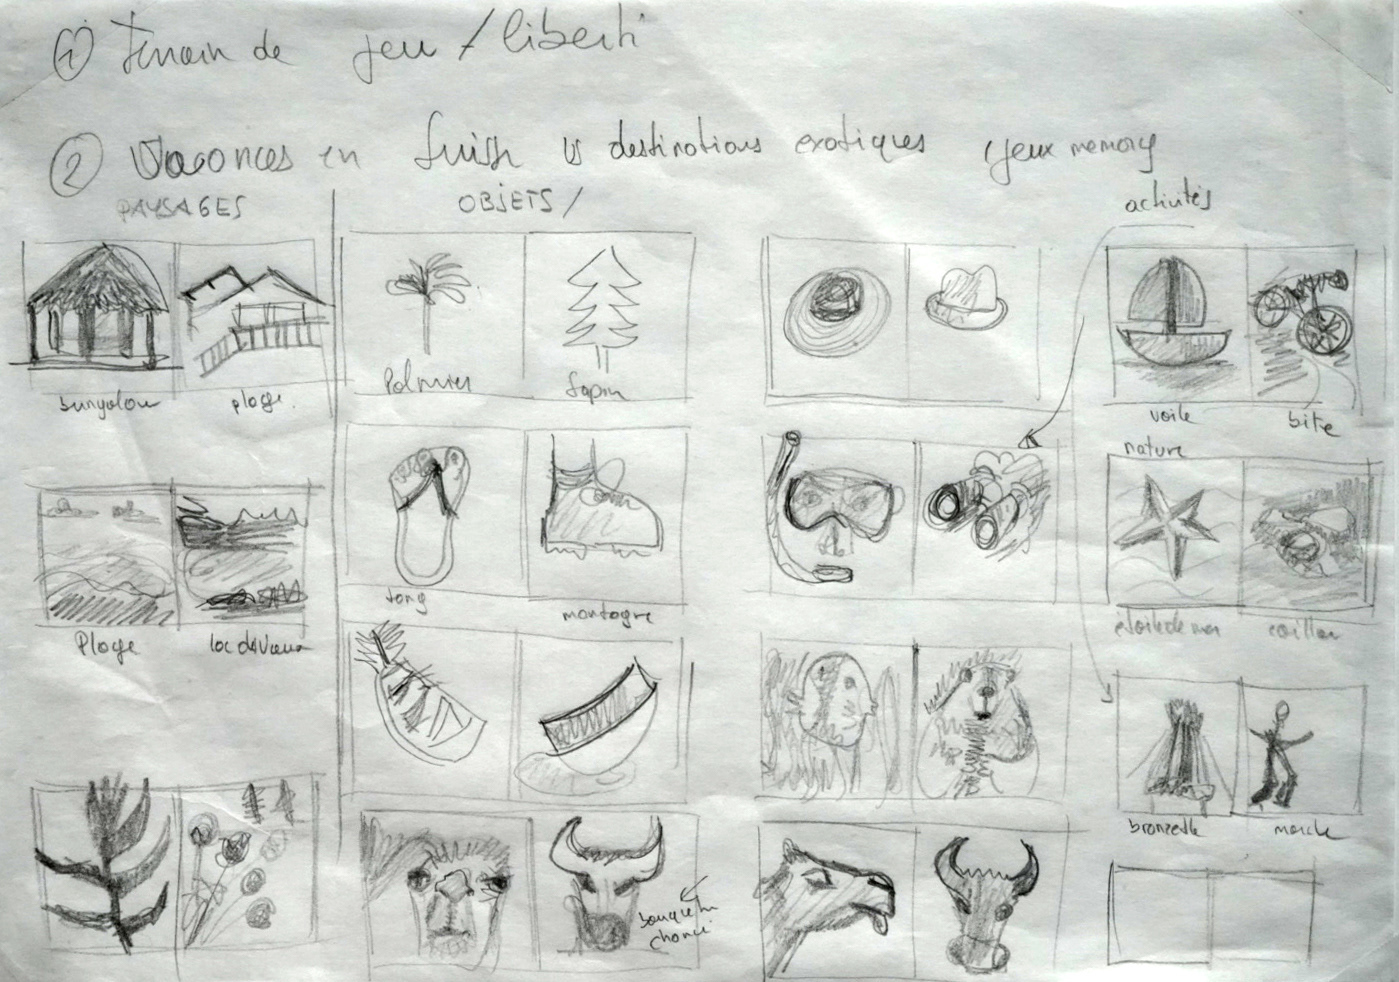 1 Terrain de jeu / liberté
2 Vacances en Suisse vs destinations exotiques (jeux memory
PAYSAGES
OBJETS /
activités
bungalow
plage
Palmier
Sapin
voile
bike
nature
tong
montagne
étoile de mer
caillou
Plage
lac
bronzette
marche
bouquetin